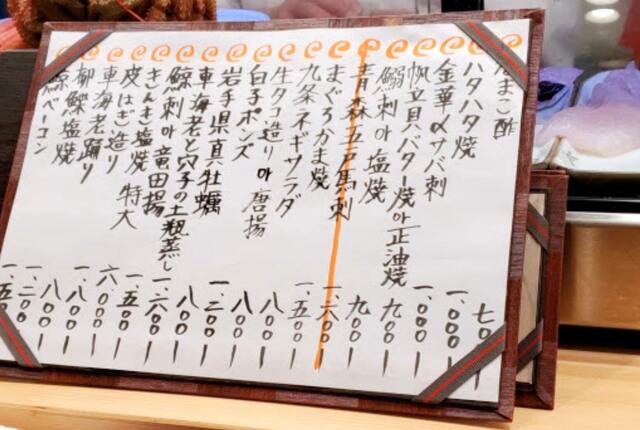 なまこ酢 七〇〇
ハタハタ焼 一、〇〇〇
金華〆サバ刺 一、〇〇〇
帆立貝バター焼or正油焼 九〇〇
鰯刺or塩焼 九〇〇
青森五戸馬刺 一、六〇〇
まぐろかま焼 一、五〇〇
九条ネギサラダ 八〇〇
生タコ造りor唐揚 八〇〇
白子ポンズ 八〇〇
岩手県真牡蠣 一、三〇〇
車海老と穴子の土瓶蒸し 八〇〇
鯨刺or竜田揚 一、六〇〇
きんき塩焼 特大 六〇〇〇
皮はぎ造り 一、五〇〇
車海老踊り 一、八〇〇
柳鰈塩焼 一、三〇〇
鯨ベーコン 一、五〇〇